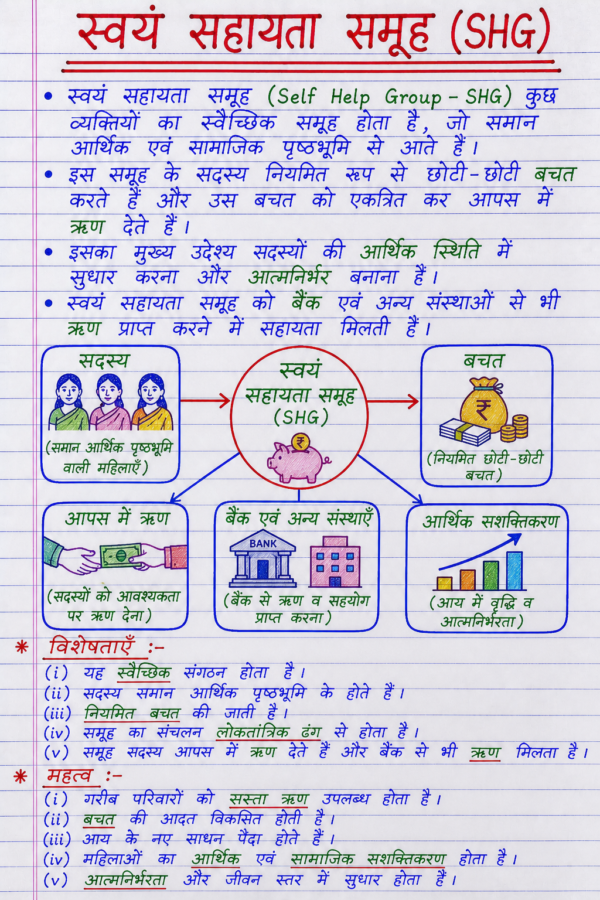 स्वयं सहायता समूह (SHG)
• स्वयं सहायता समूह (Self Help Group – SHG) कुछ
व्यक्तियों का स्वैच्छिक समूह होता है, जो समान
आर्थिक एवं सामाजिक पृष्ठभूमि से आते हैं।
• इस समूह के सदस्य नियमित रूप से छोटी-छोटी बचत
करते हैं और उस बचत को एकत्रित कर आपस में
ऋण देते हैं।
• इसका मुख्य उद्देश्य सदस्यों की आर्थिक स्थिति में
सुधार करना और आत्मनिर्भर बनाना हैं।
• स्वयं सहायता समूह को बैंक एवं अन्य संस्थाओं से भी
ऋण प्राप्त करने में सहायता मिलती हैं।
सदस्य
(समान आर्थिक पृष्ठभूमि
वाली महिलाएँ)
स्वयं
सहायता समूह
(SHG)
₹
बचत
₹
(नियमित छोटी-छोटी
बचत)
आपस में ऋण
(सदस्यों को आवश्यकता
पर ऋण देना)
बैंक एवं अन्य संस्थाएँ
BANK
(बैंक से ऋण व सहयोग
प्राप्त करना)
आर्थिक सशक्तिकरण
(आय में वृद्धि व
आत्मनिर्भरता)
* विशेषताएँ :-
(i) यह स्वैच्छिक संगठन होता है।
(ii) सदस्य समान आर्थिक पृष्ठभूमि के होते हैं।
(iii) नियमित बचत की जाती है।
(iv) समूह का संचलन लोकतांत्रिक ढंग से होता है।
(v) समूह सदस्य आपस में ऋण देते हैं और बैंक से भी ऋण मिलता है।
* महत्व :-
(i) गरीब परिवारों को सस्ता ऋण उपलब्ध होता है।
(ii) बचत की आदत विकसित होती है।
(iii) आय के नए साधन पैदा होते हैं।
(iv) महिलाओं का आर्थिक एवं सामाजिक सशक्तिकरण होता है।
(v) आत्मनिर्भरता और जीवन स्तर में सुधार होता है।